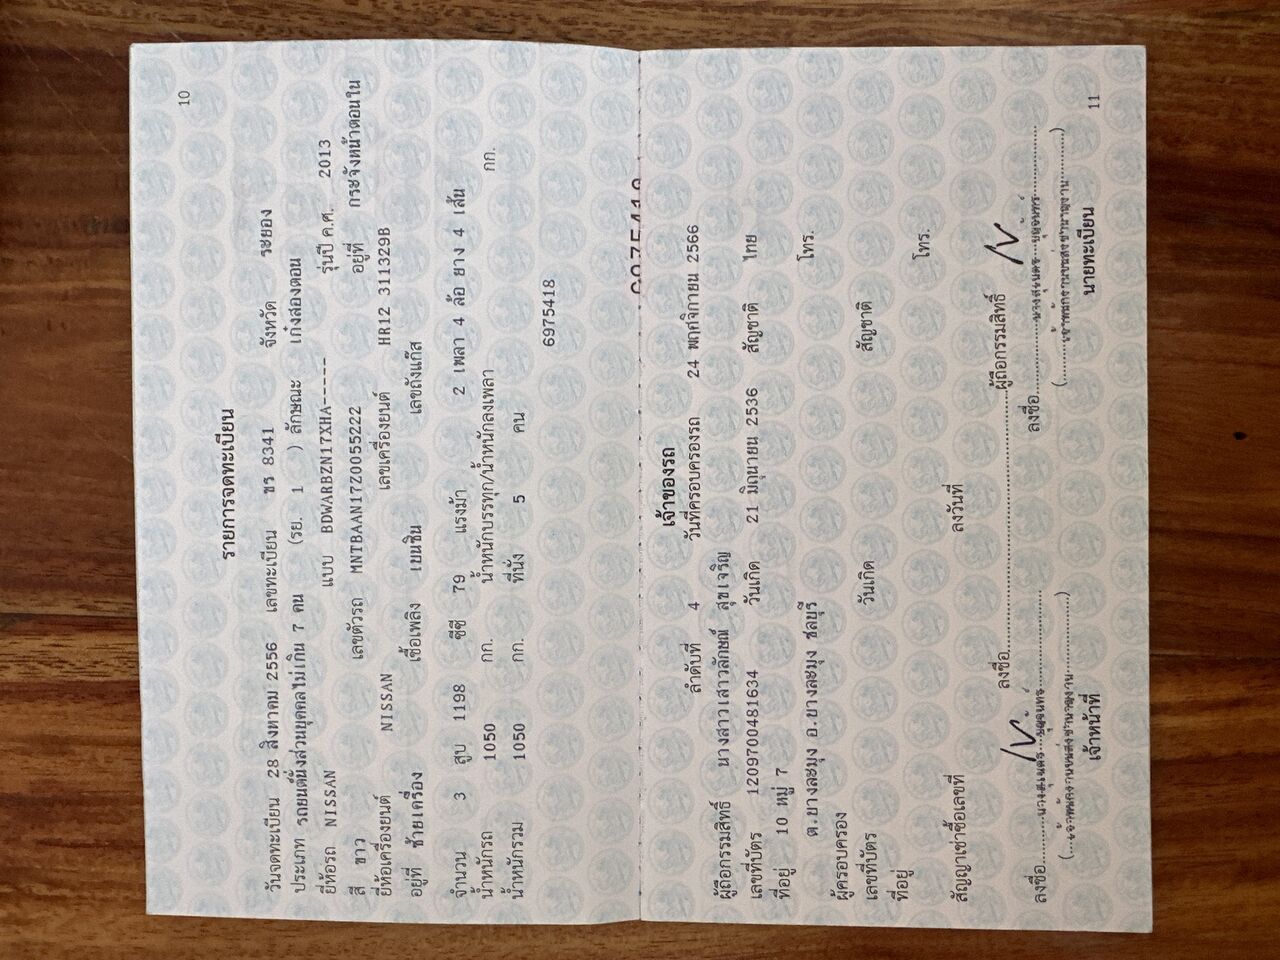 10
รายการจดทะเบียน
วันจดทะเบียน 28 สิงหาคม 2556 เลขทะเบียน ขร 8341 จังหวัด ระยอง
ประเภท รถยนต์นั่งส่วนบุคคลไม่เกิน 7 คน (รย. 1 ) ลักษณะ เก๋งสองตอน
ยี่ห้อรถ NISSAN แบบ BDWARBZN17XHA----- รุ่นปี ค.ศ. 2013
สี ขาว เลขตัวรถ MNTBAAN17Z0055222 อยู่ที่ กระจังหน้าตอนใน
ยี่ห้อเครื่องยนต์ NISSAN เลขเครื่องยนต์ HR12 311329B
อยู่ที่ ซ้ายเครื่อง เชื้อเพลิง เบนซิน เลขถังแก๊ส
จำนวน 3 สูบ 1198 ซีซี 79 แรงม้า 2 เพลา 4 ล้อ ยาง 4 เส้น
น้ำหนักรถ 1050 กก. น้ำหนักบรรทุก/น้ำหนักลงเพลา กก.
น้ำหนักรวม 1050 กก. ที่นั่ง 5 คน
6975418
เจ้าของรถ
ลำดับที่ 4 วันที่ครอบครองรถ 24 พฤศจิกายน 2566
ผู้ถือกรรมสิทธิ์ นางสาวเสาวลักษณ์ สุขเจริญ
เลขที่บัตร 1209700481634 วันเกิด 21 มิถุนายน 2536 สัญชาติ ไทย
ที่อยู่ 10 หมู่ 7
ต.บางละมุง อ.บางละมุง ชลบุรี โทร.
ผู้ครอบครอง
เลขที่บัตร วันเกิด สัญชาติ
ที่อยู่ โทร.
สัญญาเช่าซื้อเลขที่ ลงวันที่
ลงชื่อ ผู้ถือกรรมสิทธิ์
ลงชื่อ ลงชื่อ
เจ้าหน้าที่ นายทะเบียน
11